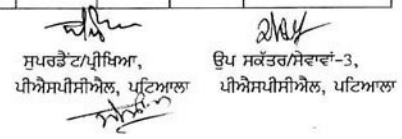 ਸੁਪਰਡੈਂਟ/ਪ੍ਰੀਖਿਆ,
ਪੀਐਸਪੀਸੀਐਲ, ਪਟਿਆਲਾ
ਉਪ ਸਕੱਤਰ/ਸੇਵਾਵਾਂ-3,
ਪੀਐਸਪੀਸੀਐਲ, ਪਟਿਆਲਾ